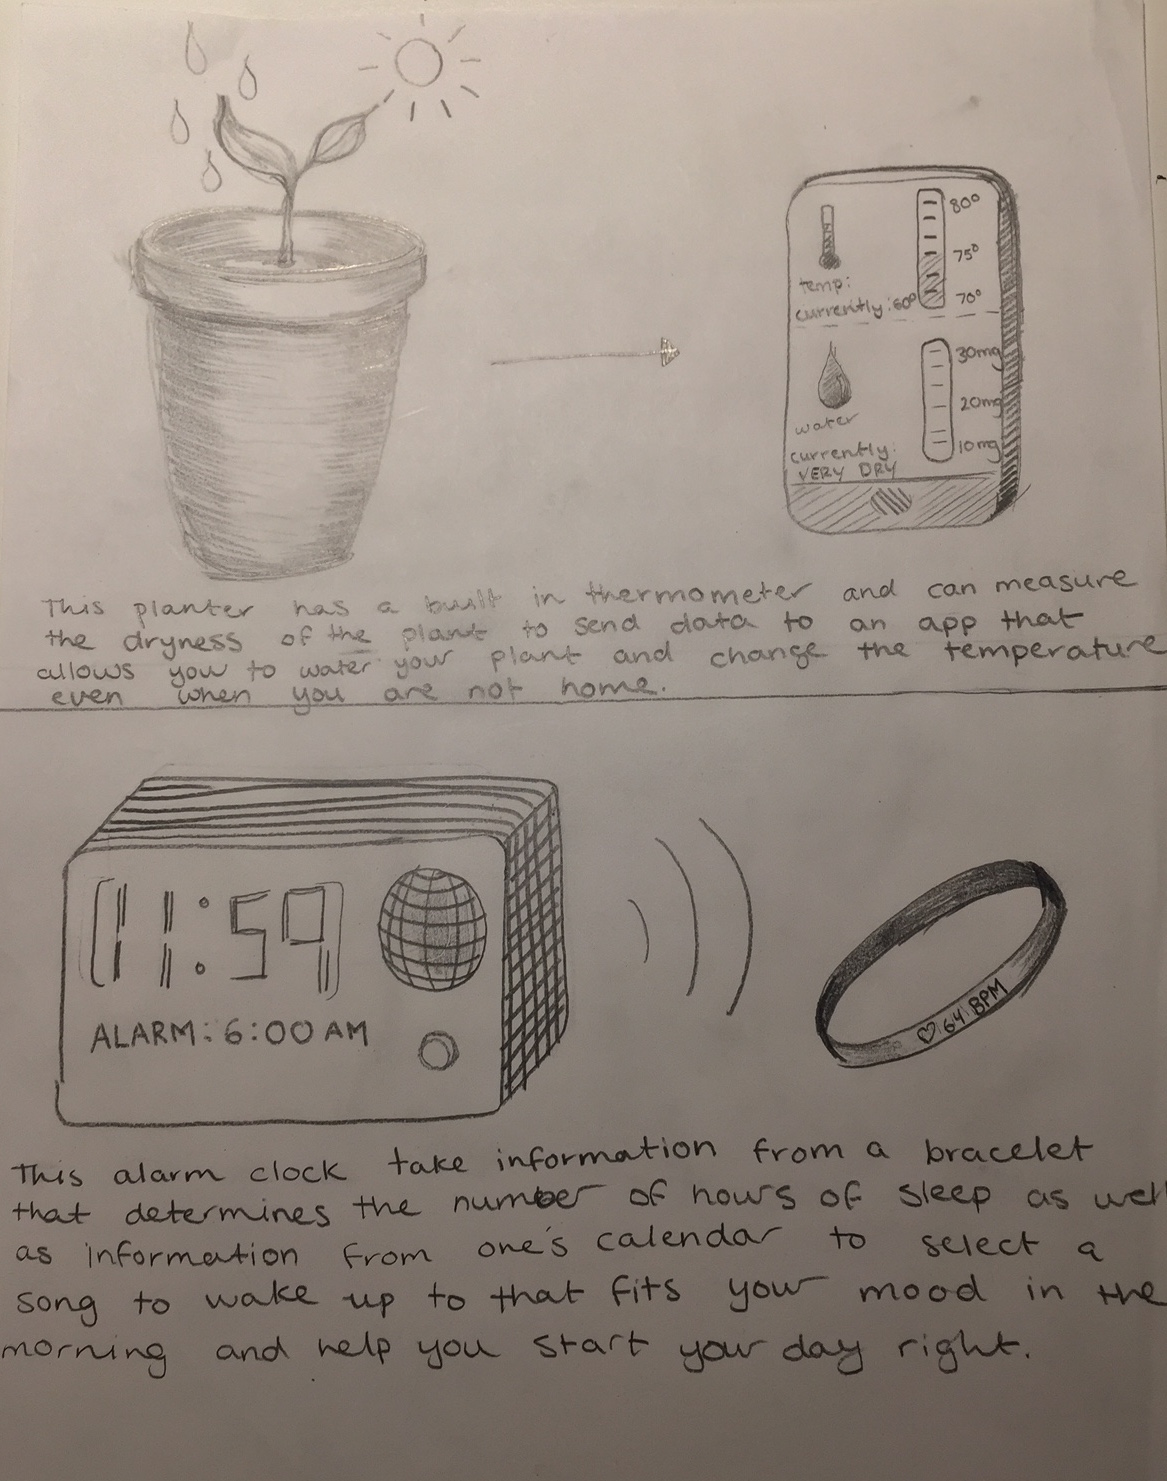 80°
75°
70°
temp:
currently: 60°
30mg
20mg
10mg
water
currently:
VERY DRY
This planter has a built in thermometer and can measure
the dryness of the plant to send data to an app that
allows you to water your plant and change the temperature
even when you are not home.
11:59
ALARM: 6:00 AM
64 BPM
This alarm clock take information from a bracelet
that determines the number of hours of sleep as well
as information from one's calendar to select a
song to wake up to that fits your mood in the
morning and help you start your day right.